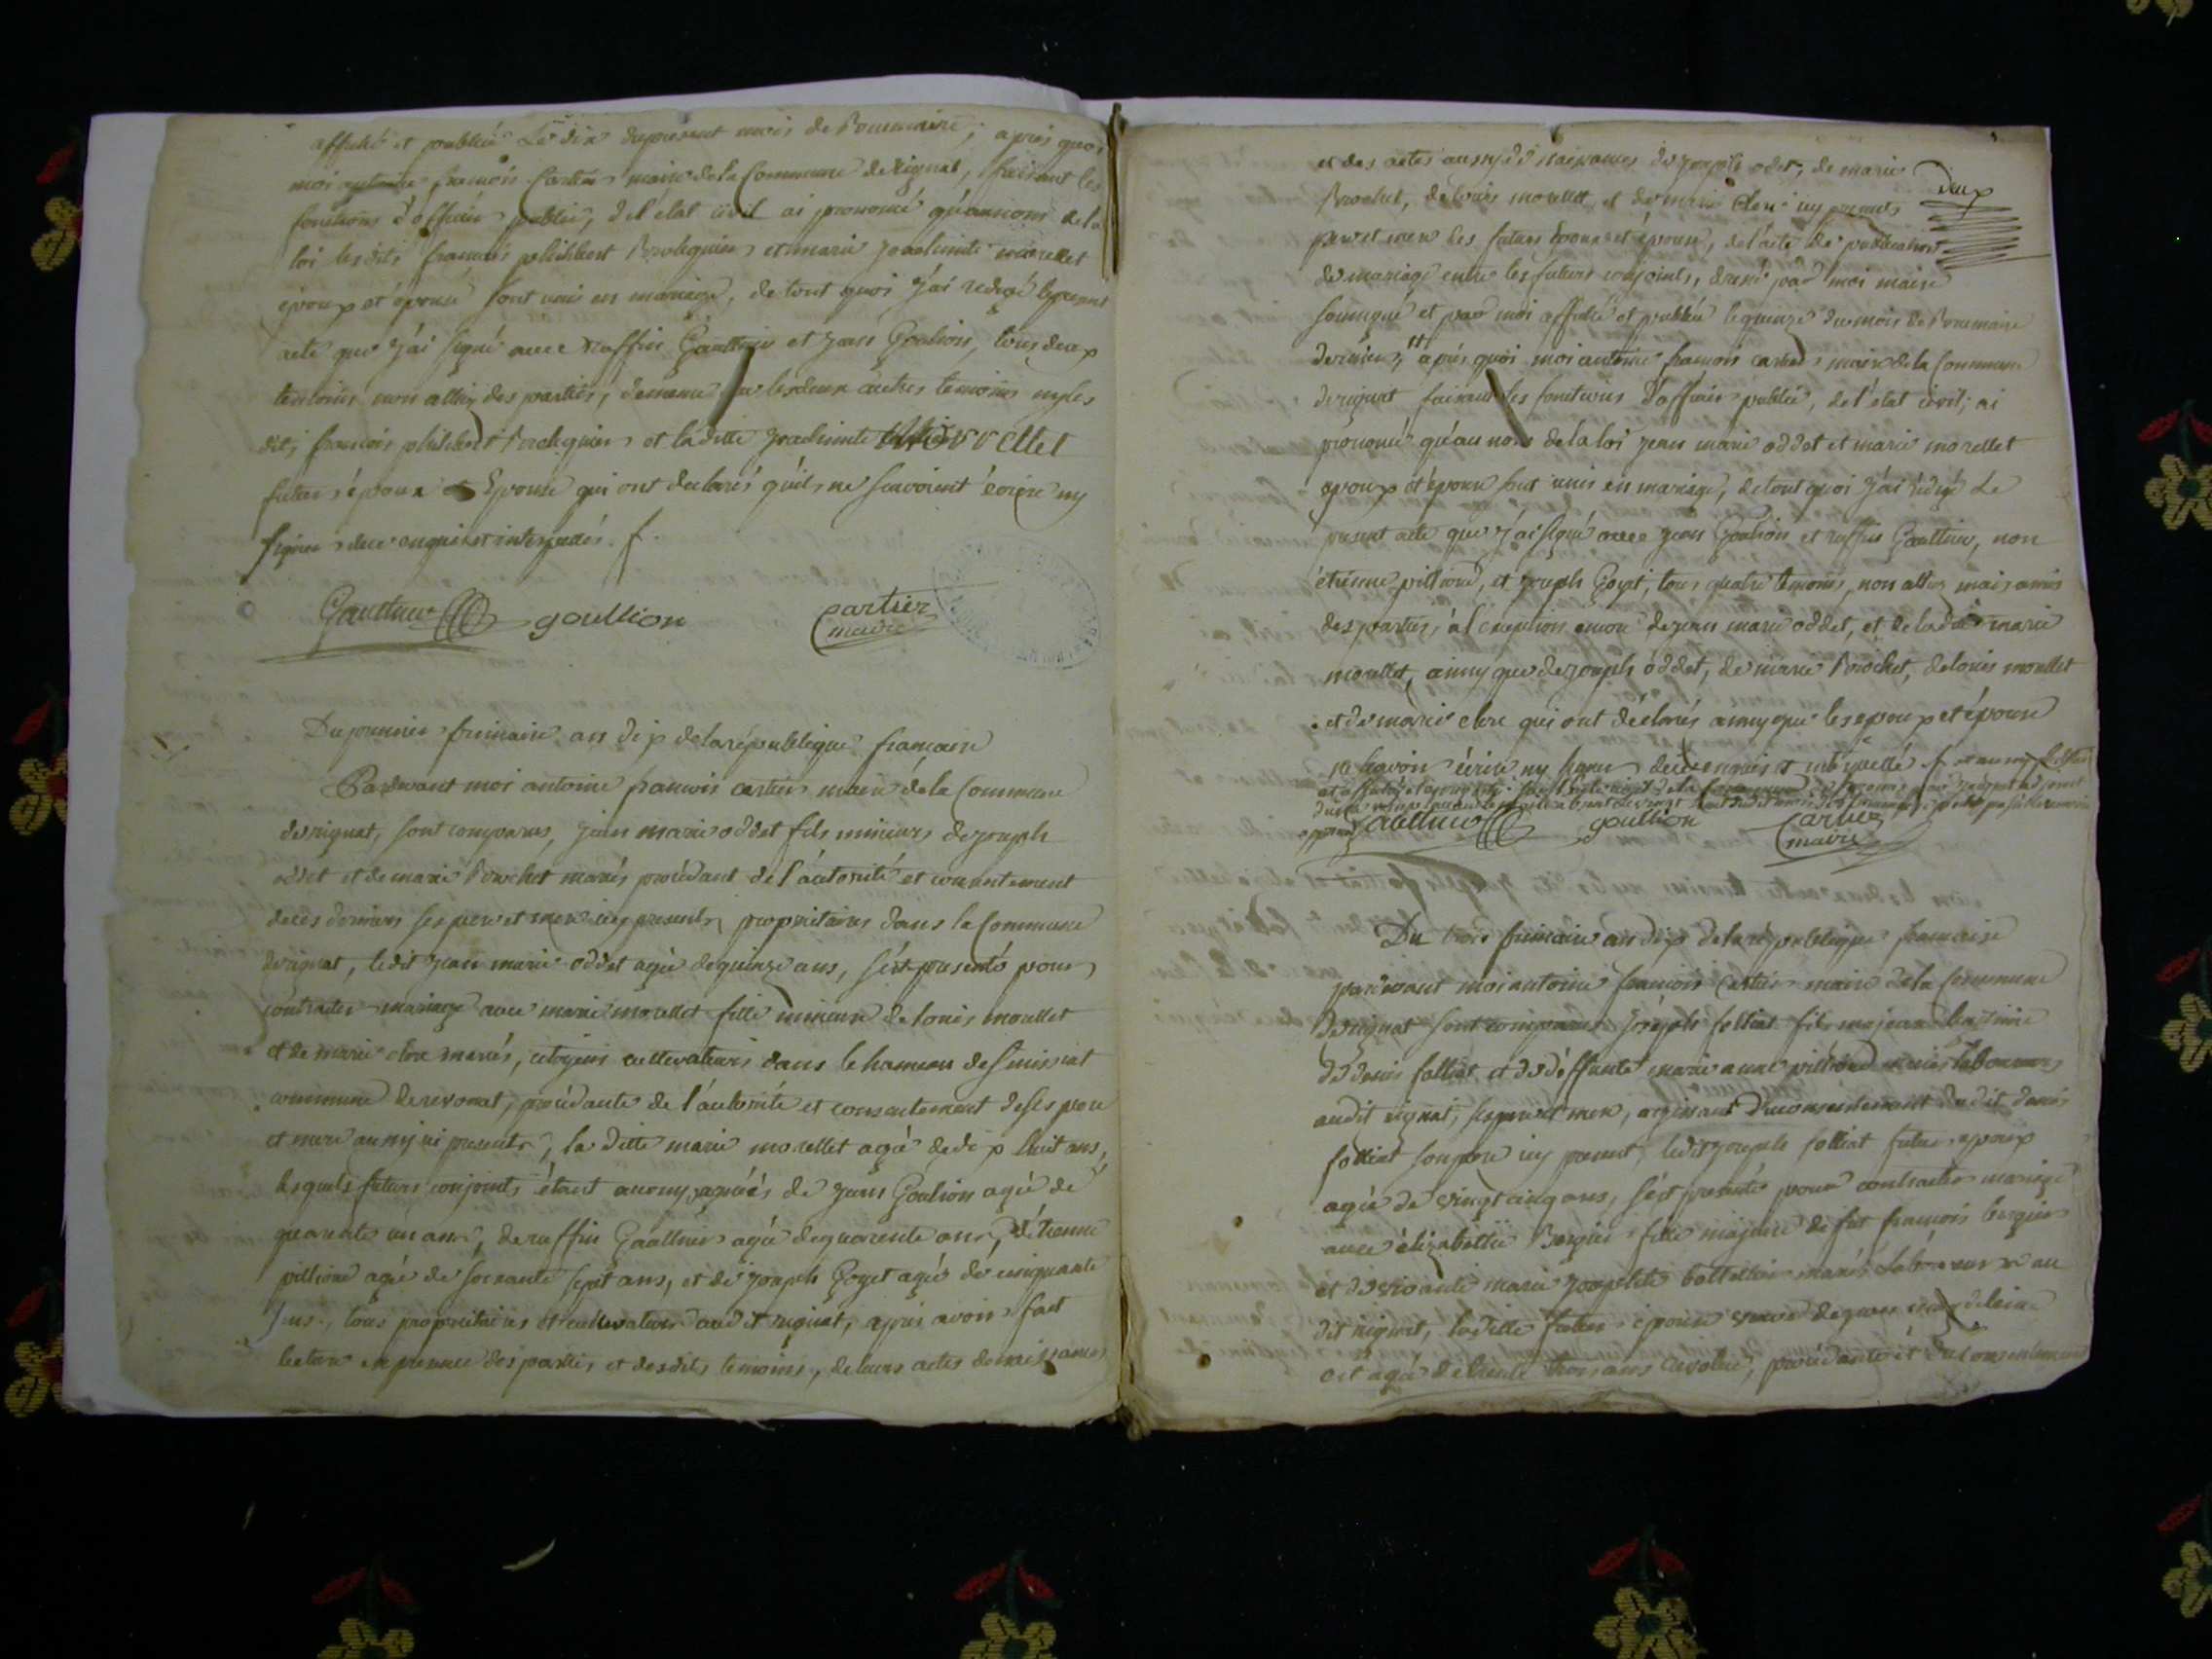 affiché et publiée Le dix du present mois de Brumaire ; apres quoi
moi antoine françois Cartier maire de la Commune de Rignat, faisant les
fonctions d'officier public, de l'état civil ai prononcé qu'au nom de la
loi lesdits francois philibert et marie morellet
epoux et épouse sont unis en mariage, de tout quoi j'ai redigé le present
acte que j'ai signé avec Ruffin Gauthier et jean Goulion, tous deux
temoins non alliez des parties, les deux autres temoins ny les
dits francois philibert et la ditte morellet
futurs époux et Epouse qui ont declarés qu'ils ne scavoient écrire ny
signer de ce enquis et interpellés.
Gauthier goullion Cartier
maire
Du premier frimaire an dix de la république française
Pardevant moi antoine francois cartier maire de la Commune
de rignat, sont comparus, jean marie oddet fils mineur de joseph
oddet et de marie Brochet mariés procédant de l'autorité et consentement
de ces derniers ses pere et mere icy presents, proprietaires dans la Commune
de rignat, ledit jean marie oddet agée de quinze ans, s'est presenté pour
contracter mariage avec marie morellet fille mineure de louis morellet
et de marie clere mariés, citoyens cultivateurs dans le hameau de
commune de revonat, procédante de l'autorité et consentement de ses pere
et mere aussy ici presents, la ditte marie morellet agée de dix huit ans,
lesquels futurs conjoints étant accompagnés de jean Goulion agée de
quarante un ans, de ruffin Gauthier agée de quarente ans, d'étienne
pillion agée de soixante sept ans, et de joseph Goyet agée de cinquante
ans, tous proprietaires et cultivateurs audit rignat, apres avoir fait
lecture en presence des parties et desdits temoins, de leurs actes de naissances
deux
et des actes aussy de naissances de joseph odet, de marie
Brochet, de louis morellet et de marie Clere icy presents
pere et mere des futurs époux et épouse, de l'acte de publication
de mariage entre les futurs conjoints, dressé par moi maire
soussigné et par moi affiché et publiée le quinze du mois de Brumaire
dernier, apres quoi moi antoine francois cartier maire de la Commune
de rignat faisant les fonctions d'officier public, de l'état civil, ai
prononcé qu'au nom de la loi jean marie oddet et marie morellet
epoux et épouse sont unis en mariage, de tout quoi j'ai rédigé Le
present acte que j'ai signé avec jean Goulion et ruffin Gauthier, non
étienne pillion, et joseph Goyet, tous quatre temoins, non alliez mais amis
des parties, à l'exception encore de jean marie oddet, et de ladite marie
morellet, ainsy que de joseph oddet, de marie Brochet, de louis morellet
et de marie clere qui ont déclarés ainsy que les epoux et épouse
ne scavoir écrire ny signer de ce enquis et interpellé
Gauthier goullion Cartier
maire
Du trois frimaire an dix de la république francaise
pardevant moi antoine francois Cartier maire de la Commune
de rignat sont comparus joseph folliat fils majeur legitime
de denis folliat et de deffunte marie anne pillion mariés laboureurs
audit rignat, ses pere et mere, agissant du consentement dudit denis
folliat son pere icy present, ledit joseph folliat futur epoux
agée de vingt cinq ans, s'est presenté pour contracter mariage
avec élizabette Bergier fille majeure de fut francois bergier
et de vivante marie josephte mariés laboureurs au
dit rignat, la ditte future épouse veuve de
est agée de trente trois ans revolus, procédante et du consentement